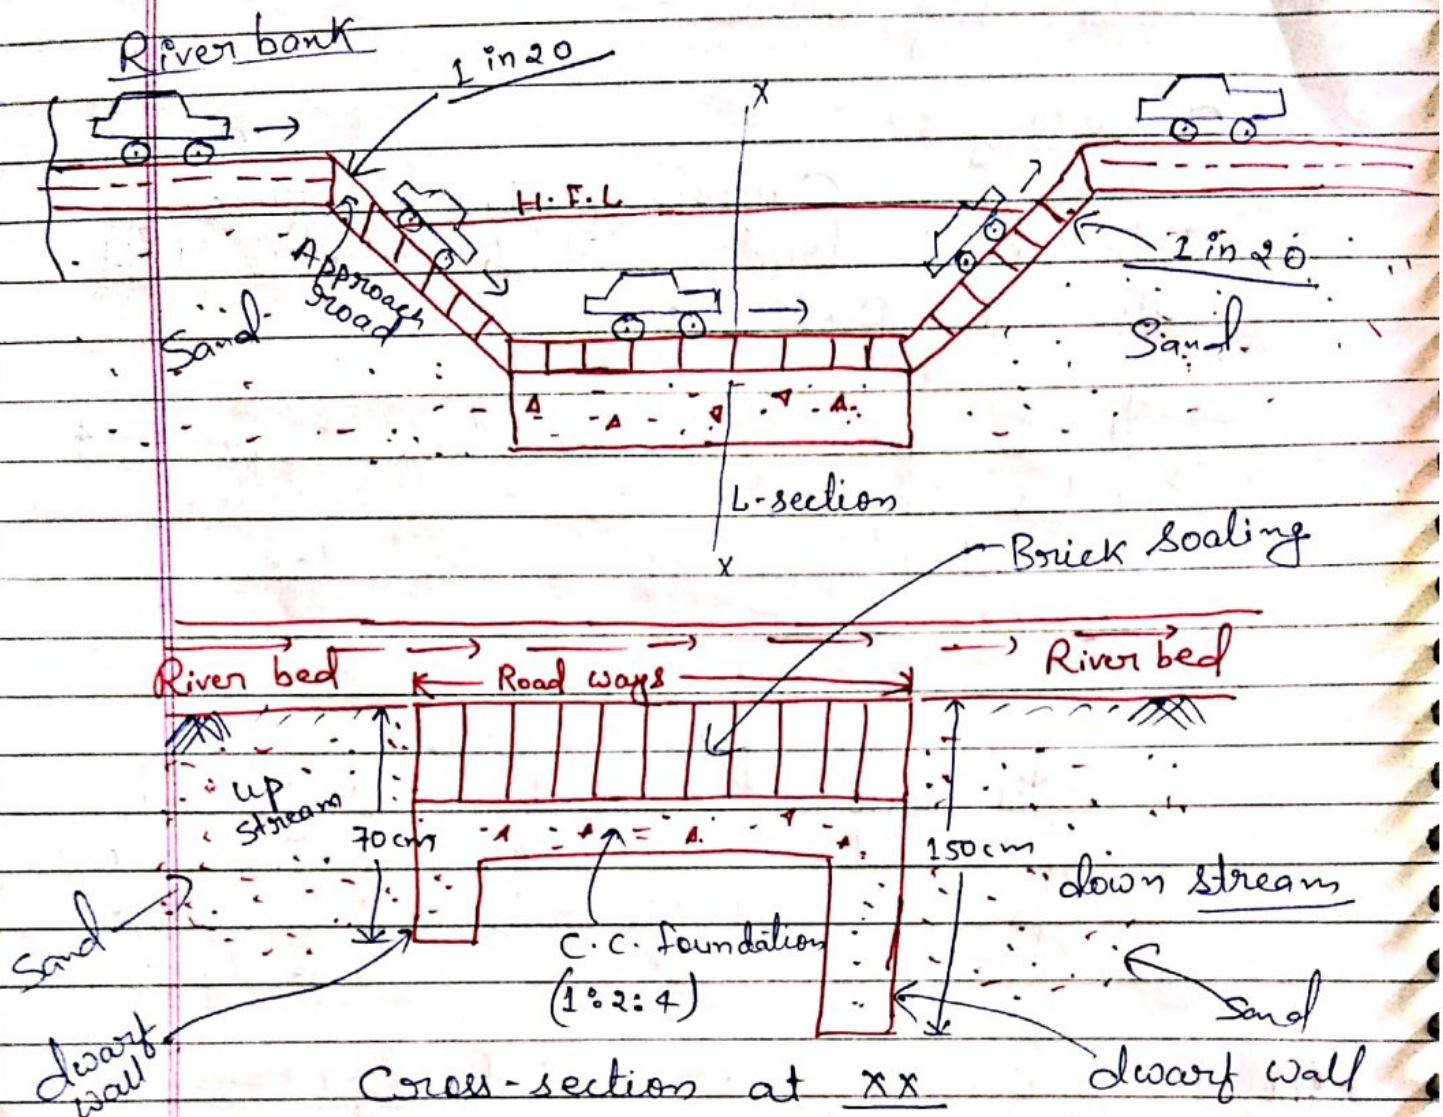 River bank
1 in 20
X
H.F.L
Approach
road
1 in 20
Sand
Sand
L-section
X
Brick Soaling
River bed
Road ways
River bed
up
stream
70cm
150cm
down stream
Sand
C.C. foundation
(1:2:4)
Sand
dwarf
wall
dwarf wall
Cross-section at XX